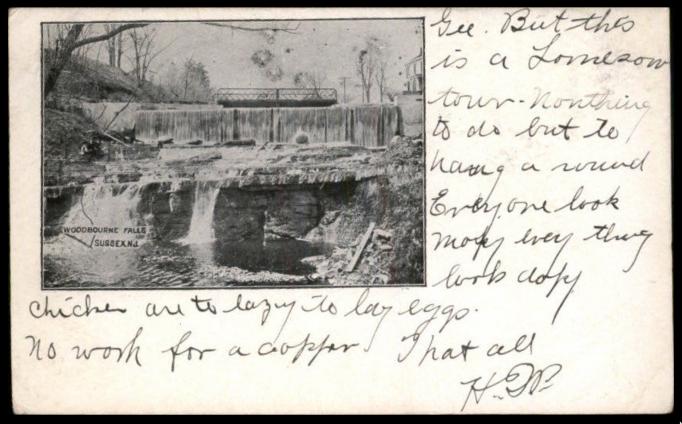 Gee. But this
is a Lonesom
town - Nonthing
to do but to
hang a round
Every one look
mopy evey thing
look dopy
chicken are to lazy to lay eggs.
No work for a copper That all
WOODBOURNE FALLS
SUSSEX N.J.